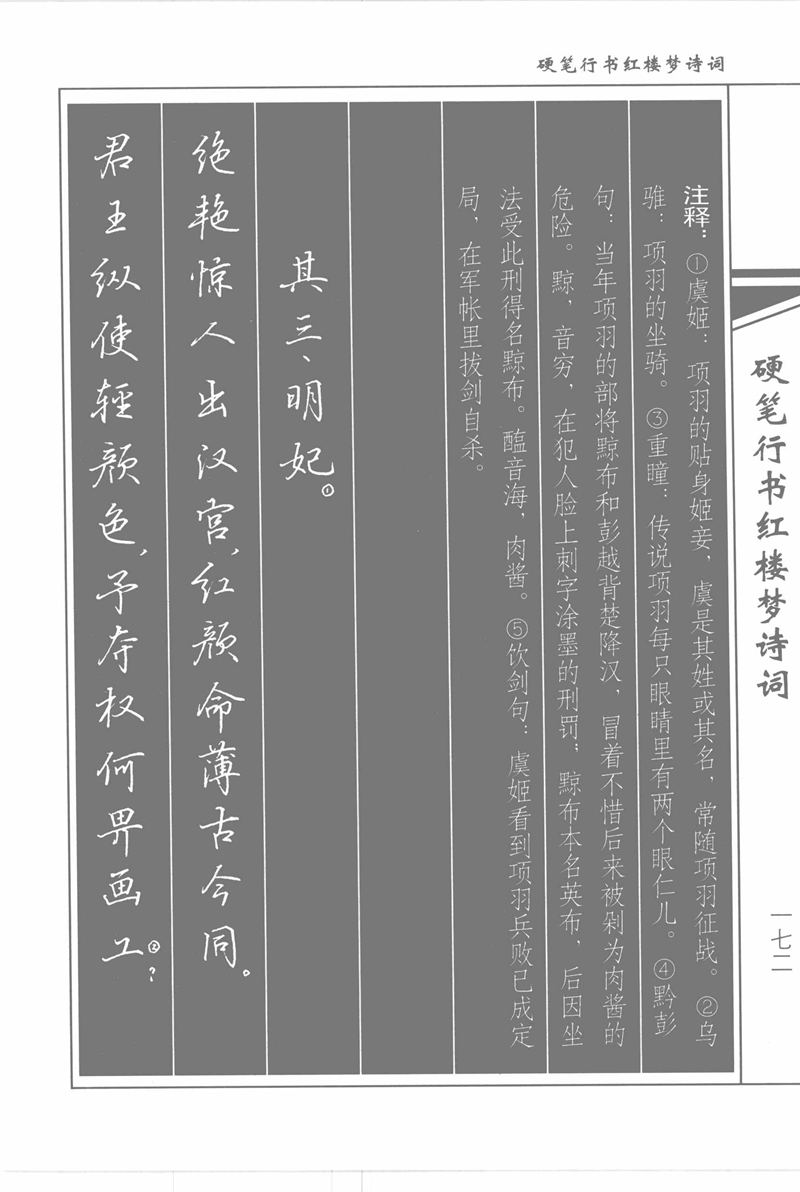 硬笔行书红楼梦诗词
硬笔行书红楼梦诗词
一七二
注释：①虞姬：项羽的贴身姬妾，虞是其姓或其名，常随项羽征战。②乌
骓：项羽的坐骑。③重瞳：传说项羽每只眼睛里有两个眼仁儿。④黔彭
句：当年项羽的部将黥布和彭越背楚降汉，冒着不惜后来被剁为肉酱的
危险。黥，音穷，在犯人脸上刺字涂墨的刑罚；黥布本名英布，后因坐
法受此刑得名黥布。醢音海，肉酱。⑤饮剑句：虞姬看到项羽兵败已成定
局，在军帐里拔剑自杀。
其三、明妃。①
绝艳惊人出汉宫，红颜命薄古今同。
君王纵使轻颜色，予夺权何畀画工②？